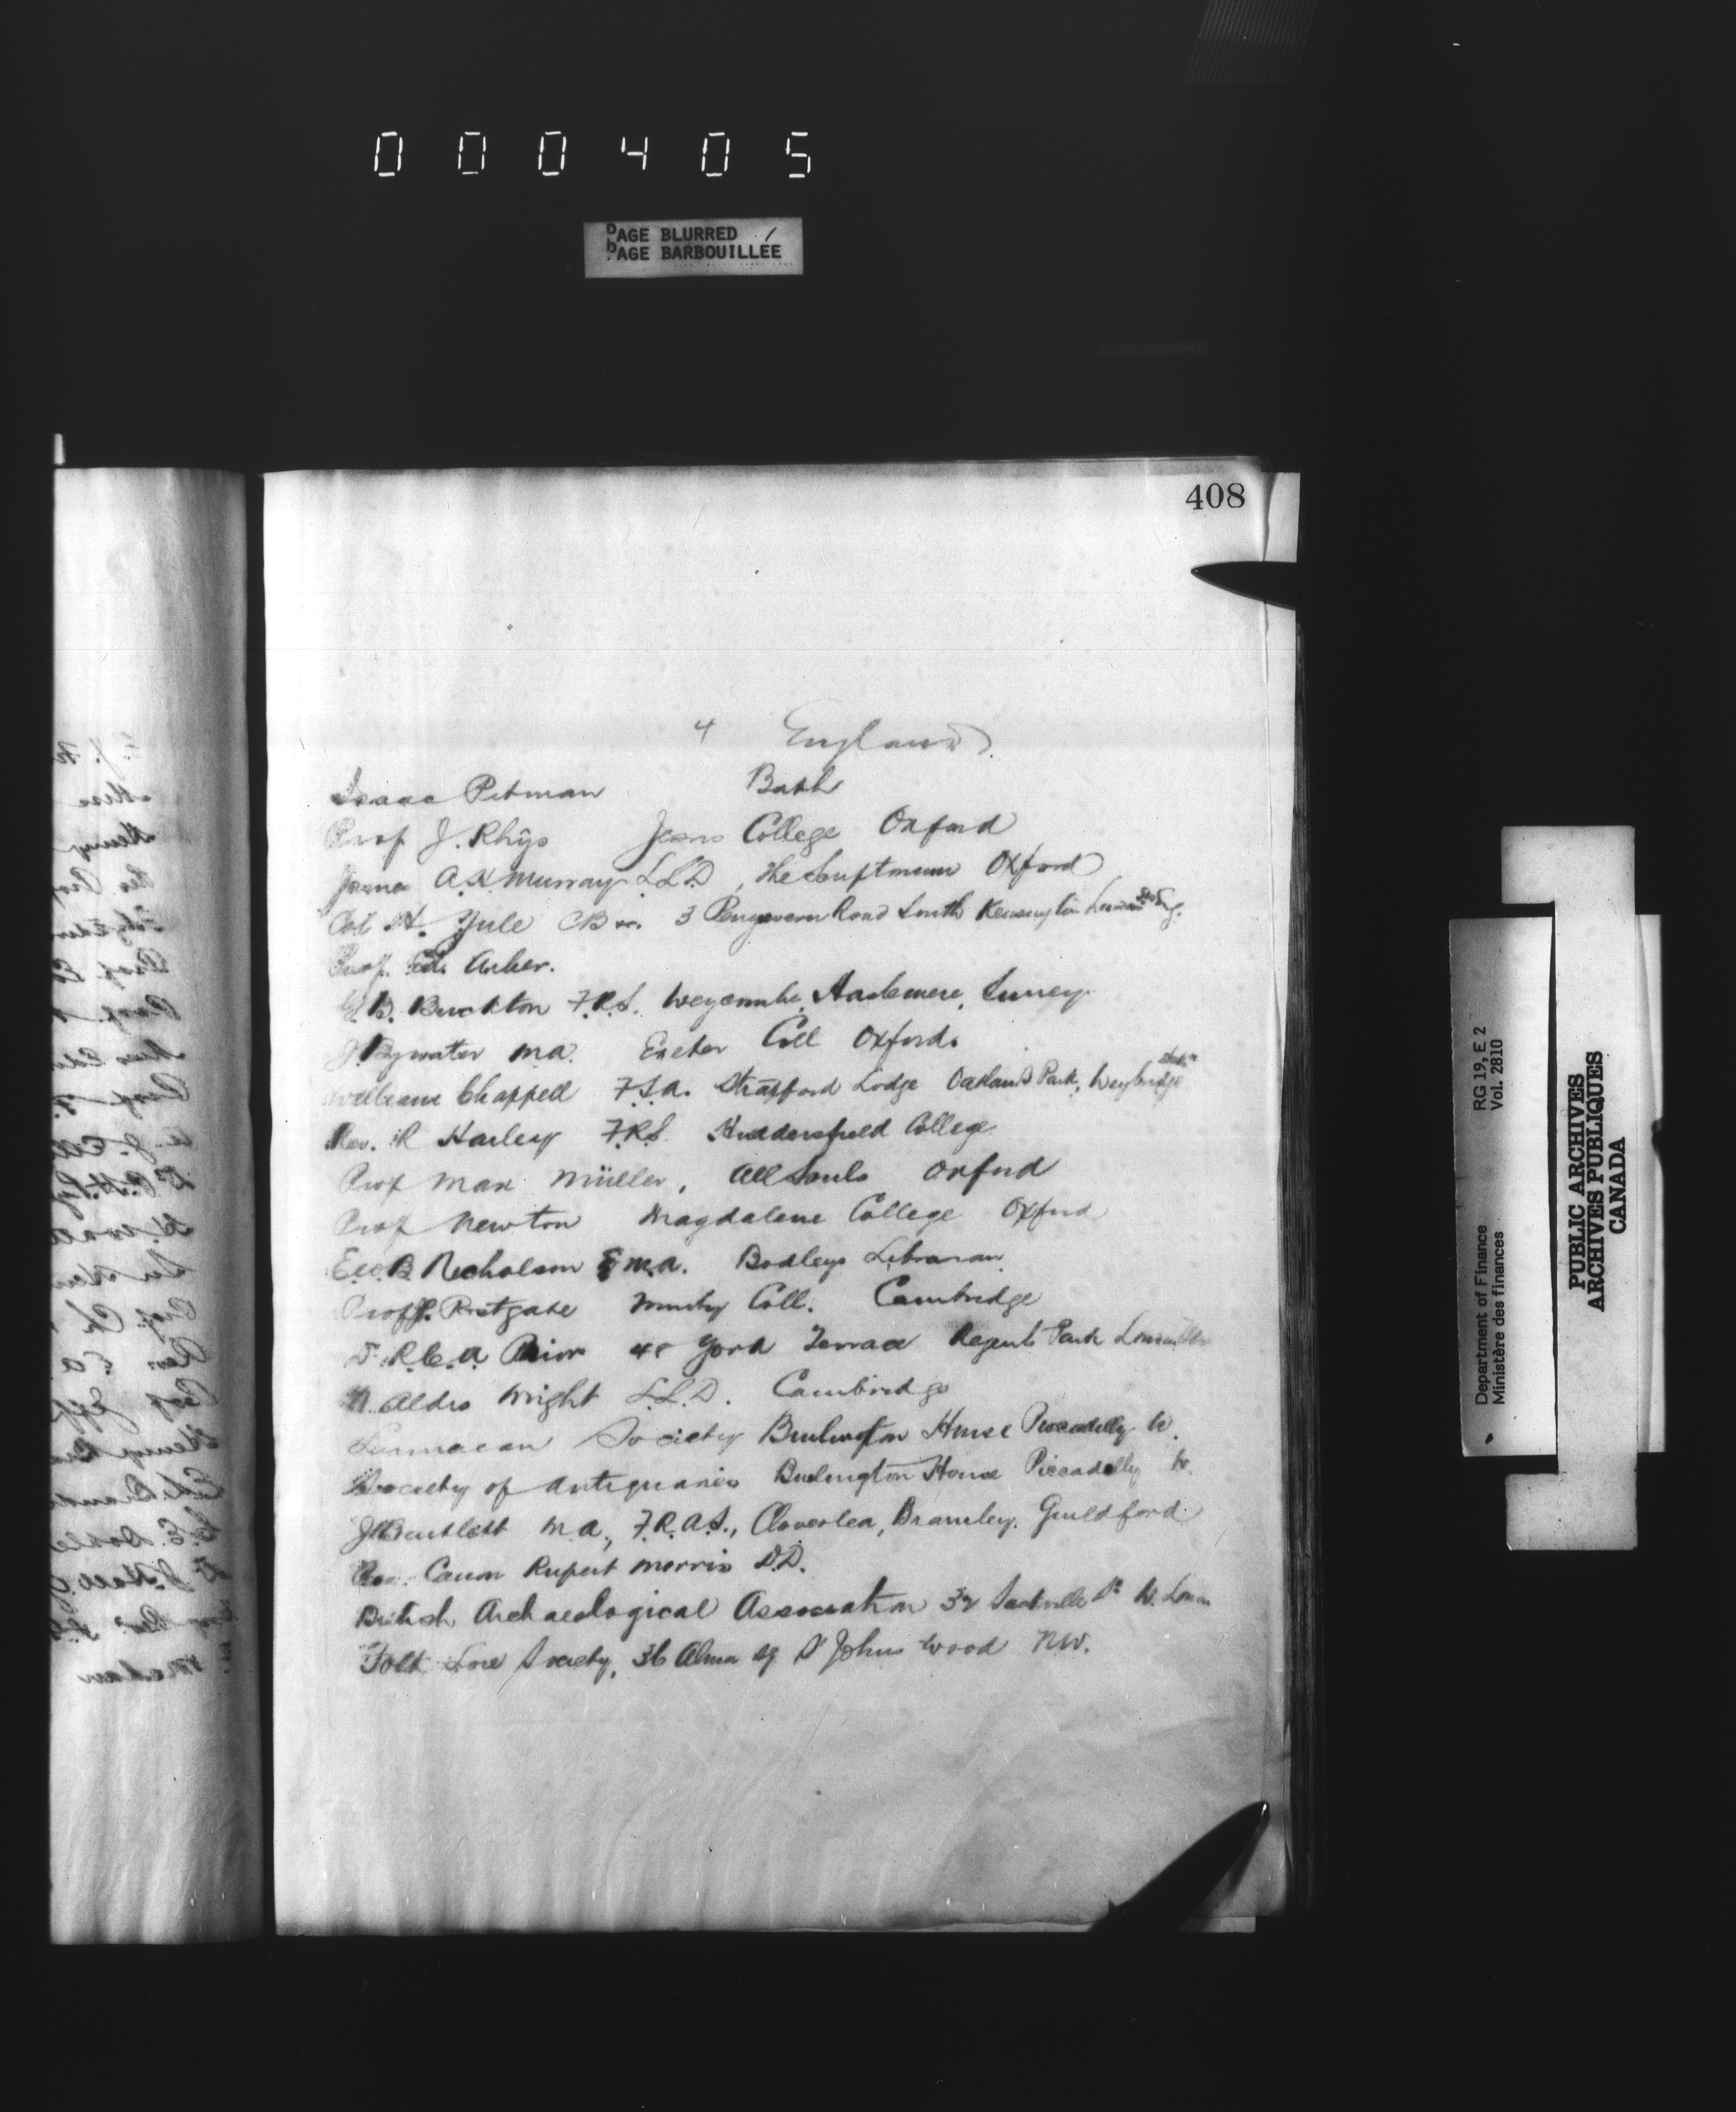 0 0 0 4 0 5
PAGE BLURRED
PAGE BARBOUILLÉE
408
4 England
Isaac Pitman Bath
Prof J. Rhŷs Jesus College Oxford
James A.H. Murray L.L.D, The Scriptorium Oxford
Col H. Yule CB 3 Pengwern Road South Kensington London
Prof. Ed. Arber.
G.B. Buckton F.R.S. Weycombe, Haslemere, Surrey
J. Bywater M.A. Exeter Coll Oxford.
William Chappell F.S.A. Strafford Lodge Oatlands Park, Weybridge
Rev. R Harley F.R.S. Huddersfield College
Prof Max Müller, All Souls Oxford
Prof Newton Magdalene College Oxford
E.W.B. Nicholson M.A. Bodleys Librarian
Prof J.P. Postgate Trinity Coll. Cambridge
D. R.C.A. Prior 48 York Terrace Regents Park London
W. Aldis Wright L.L.D. Cambridge
Linnaean Society Burlington House Piccadilly W.
Society of Antiquaries Burlington House Piccadilly W.
J. Bartlett M.A., F.R.A.S., Cloverlea, Bramley. Guildford
Rev. Canon Rupert Morris D.D.
British Archaeological Association 32 Sackville St W. London
Folk Lore Society, 36 Alma sq St Johns Wood NW.
Department of Finance RG 19, E 2
Ministère des finances Vol. 2810
PUBLIC ARCHIVES
ARCHIVES PUBLIQUES
CANADA